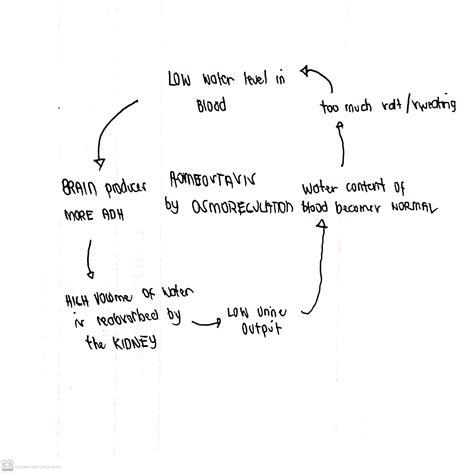 LOW water level in
Blood
too much salt/sweating
BRAIN produces
MORE ADH
HOMEOSTASIS
by OSMOREGULATION
Water content of
blood becomes NORMAL
HIGH Volume of water
is reabsorbed by
the KIDNEY
LOW Urine
OUTPUT
CS Scanned with CamScanner